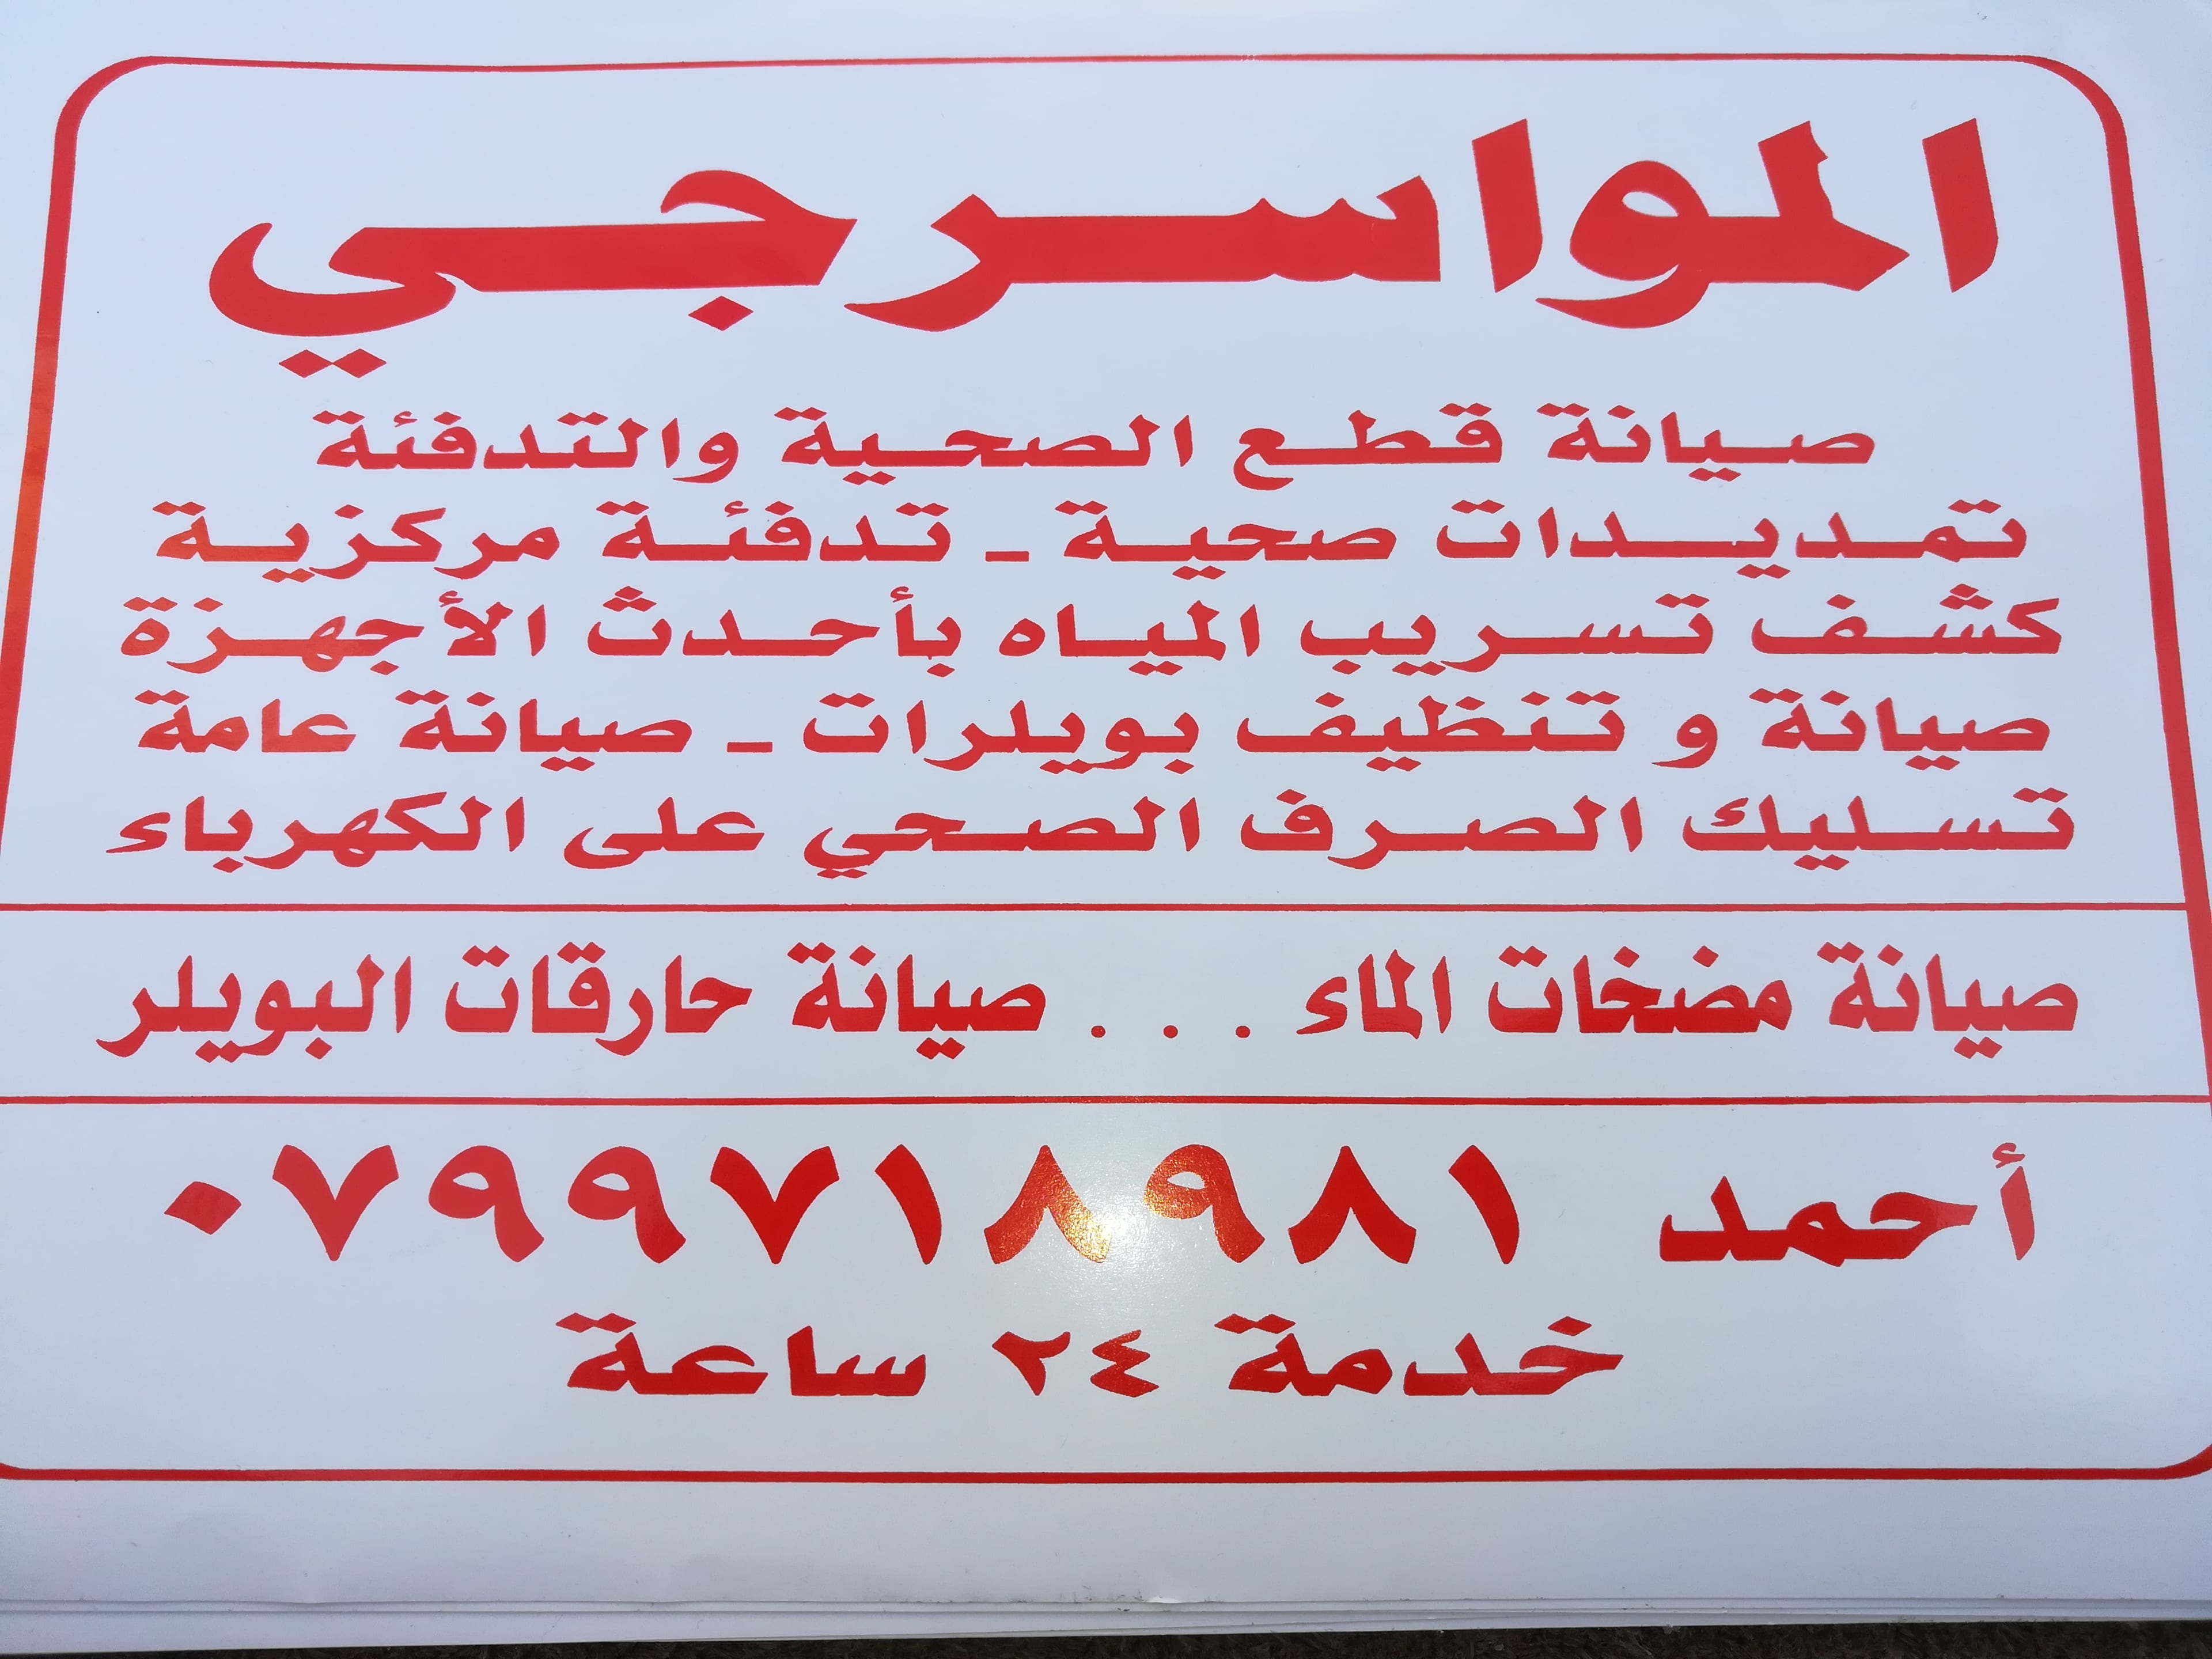 المواسرجي
صيانة قطع الصحية والتدفئة
تمديدات صحية - تدفئة مركزية
كشف تسريب المياه بأحدث الأجهزة
صيانة و تنظيف بويلرات - صيانة عامة
تسليك الصرف الصحي على الكهرباء
صيانة مضخات الماء . . . صيانة حارقات البويلر
أحمد ٠٧٩٩٧١٨٩٨١
خدمة ٢٤ ساعة